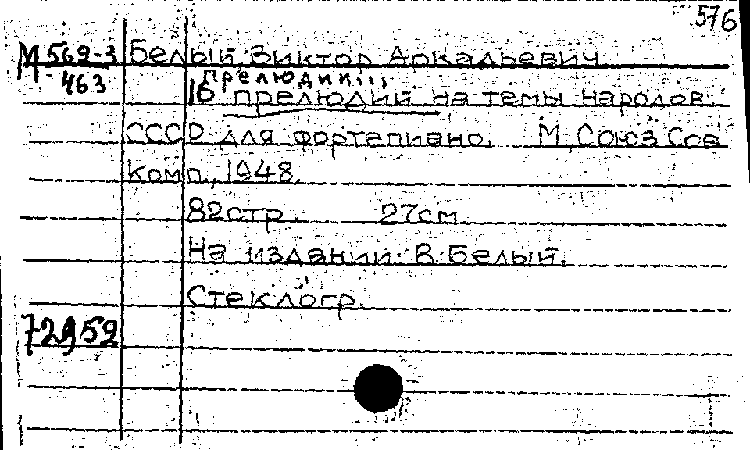 576
М 569-3 Белый, Виктор Аркадьевич
463 Прелюдии...
16 прелюдий на темы народов
СССР для фортепиано. М, Союз Сов
Комп., 1948.
82стр. 27см.
На издании: В. Белый.
Стеклогр.